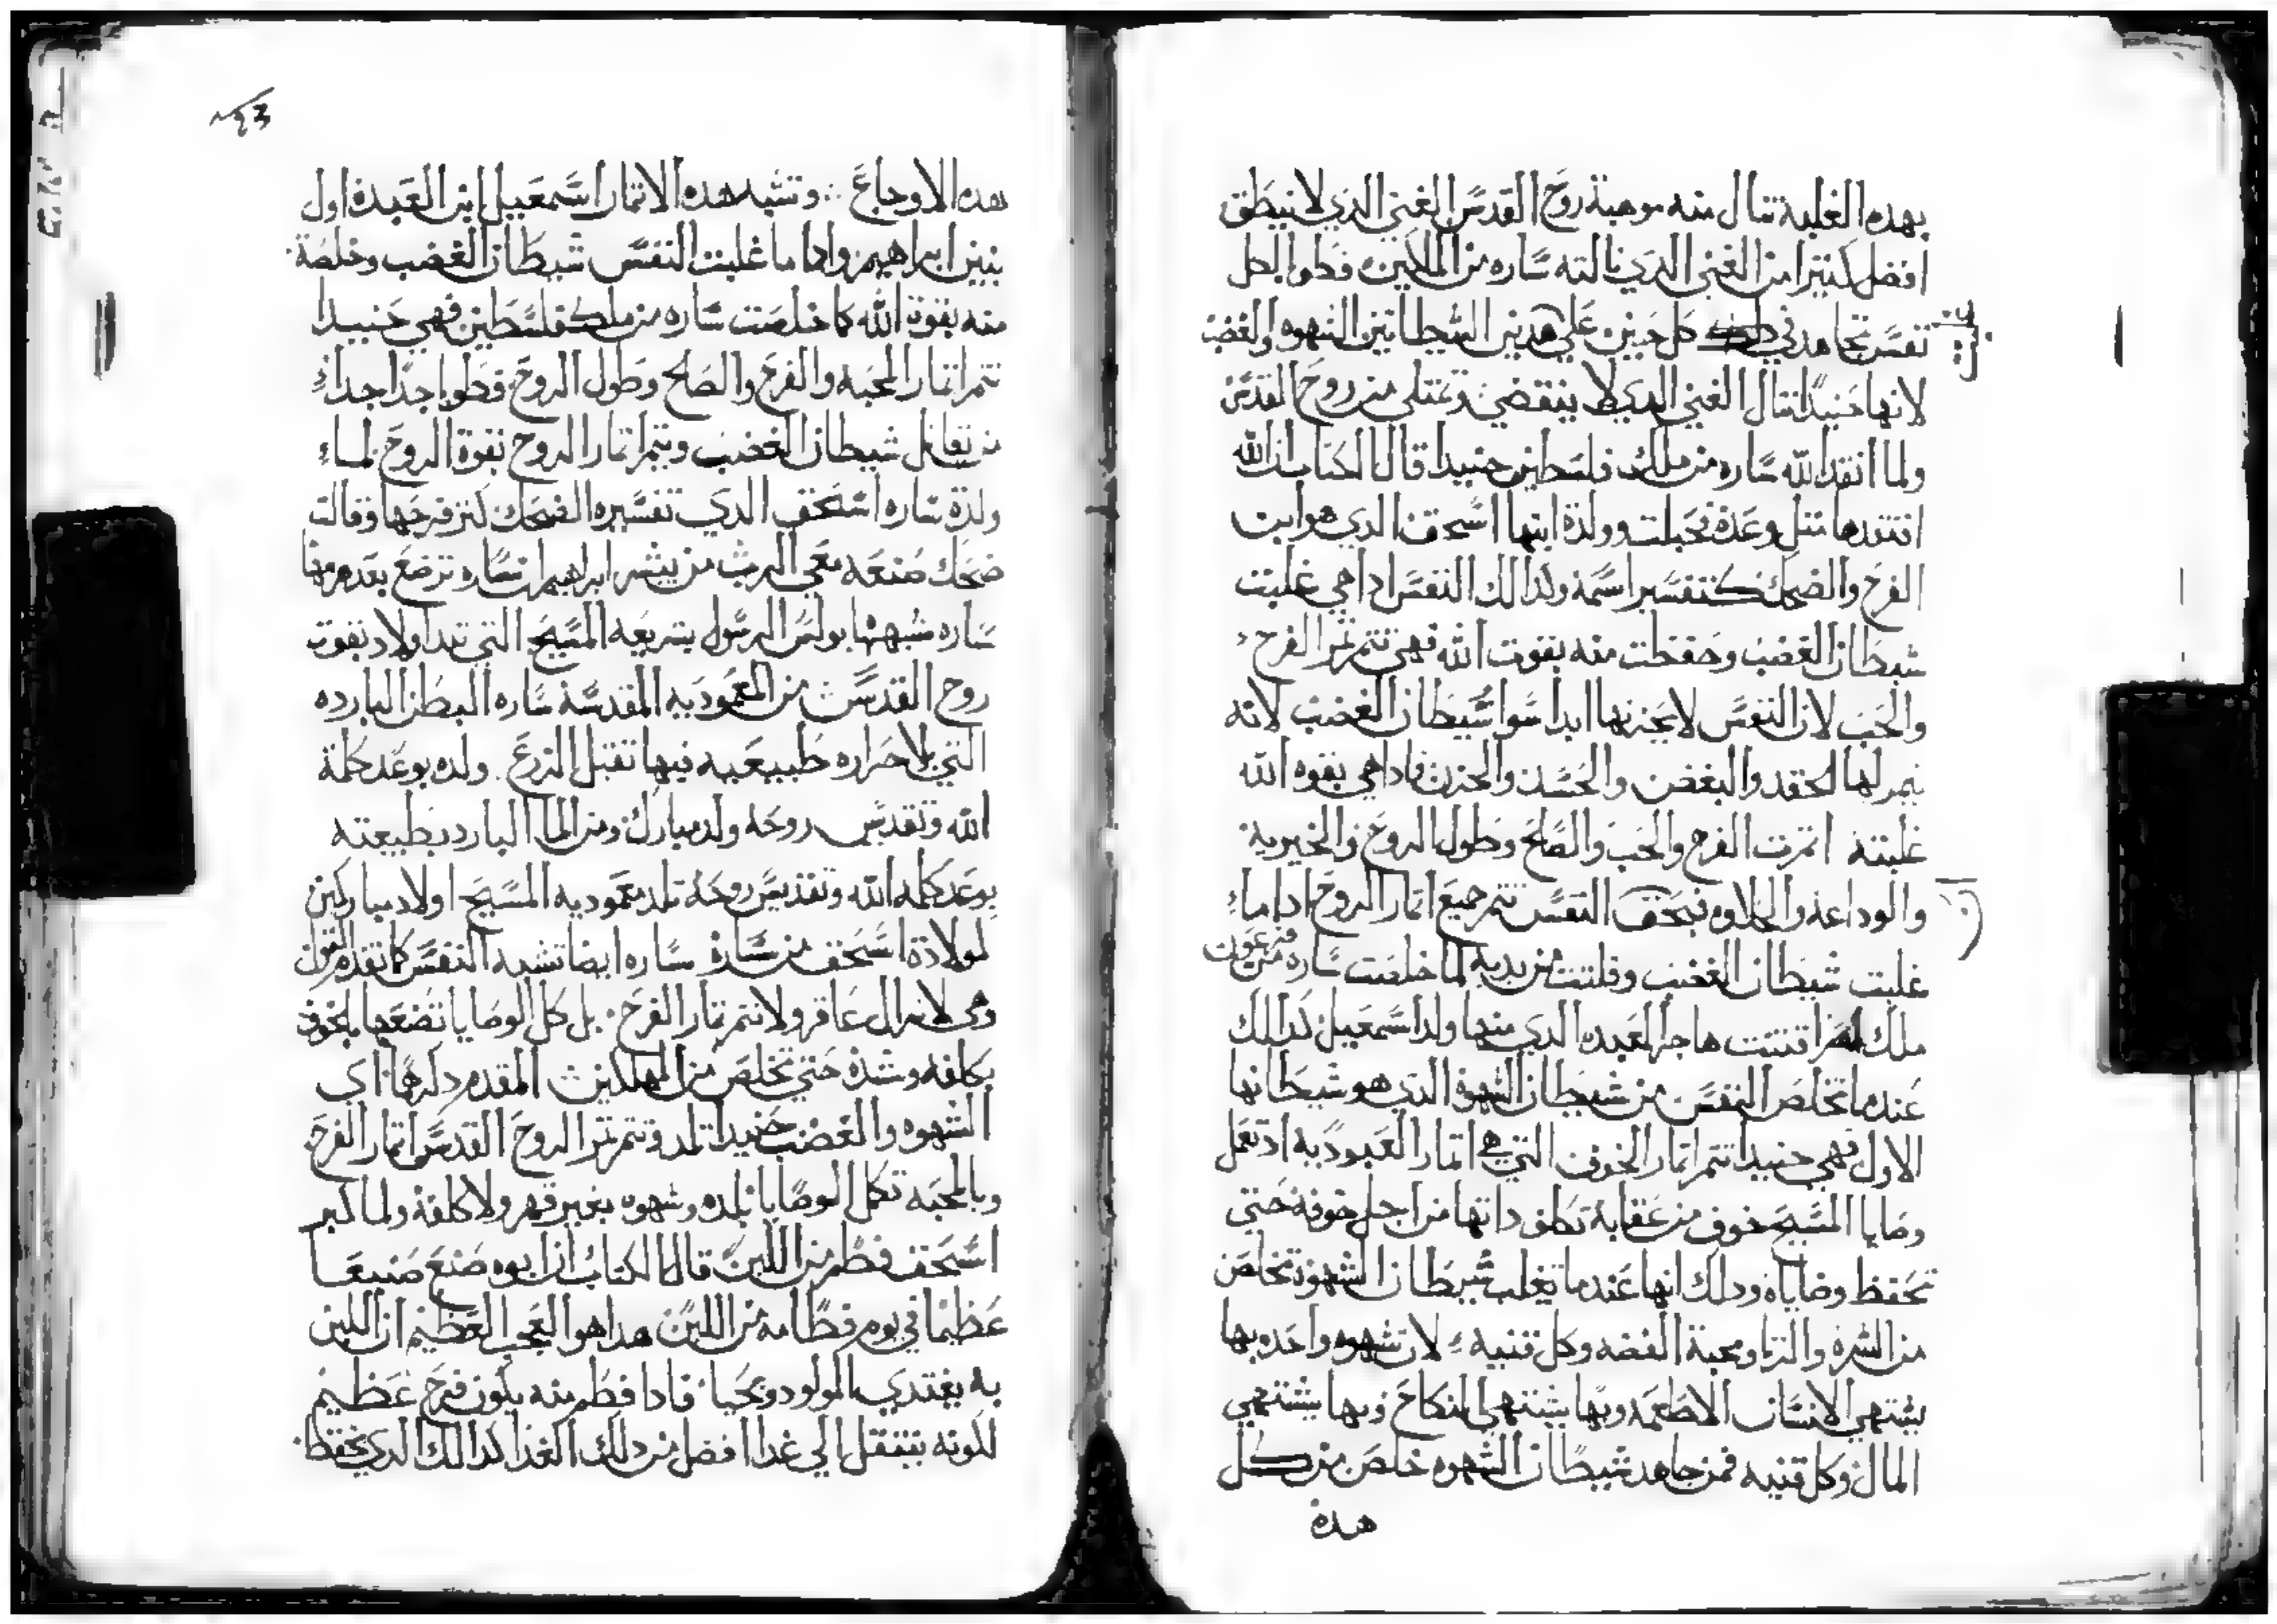 بهده الغلبة تنال منه موهبة روح القدس الغني الدي لا ينطق
افضل كتيرا من الغني الدي نالته ساره من الملكين فطوبا لكل
نفس تجاهد في دلك كل حين علي هدين الشيطانين الشهوه والغضب
لانها حنيدا تنال الغني الدي لا ينقضي وتمتلي من روح القدس
ولما انقد الله ساره من ملك فلسطين حنيدا قال الكتاب ان الله
افتقدها متل وعده فحبلت وولدة ابنها اسحق الدي هو ابن
الفرح والضحك كتفسير اسمه ولدالك النفس ادا هي غلبت
شيطان الغضب وحفظت منه بقوت الله فهي تتمر تمر الفرح
والحب لان النفس لا يحزنها ابدا سوا شيطان الغضب لانه
يتمر لها الحقد والبغض والحسد والحزن فادا هي بقوه الله
غلبته اتمرت الفرح والحب والصلح وطول الروح والخيرية
والوداعة والحلاوه فبحق النفس تتمر جميع اتمار الروح ادا ما
غلبت شيطان الغضب وفلتت من يديه لما خلصت ساره من فرعون
ملك مصر اقتنت هاجر العبده الدي منها ولد اسمعيل كدالك
عندما تخلص النفس من شيطان الشهوة الدي هو شيطانها
الاول فهي حنيدا تتمر اتمار الخوف التي هي اتمار العبودية اد تعمل
وصايا المسيح خوف من عقابة تطلق داتها من اجل خوفه حتي
تحفظ وصاياه ودلك انها عندما تغلب شيطان الشهوة تخلص
من الشره والزنا ومحبة الفضه وكل قنيه لان شهوه واحده بها
يشتهي الانسان الاطعمه وبها يشتهي النكاح وبها يشتهي
المال وكل قنيه فمن جاهد شيطان الشهوه خلص من كل
هده
هده الاوجاع وتشبه هده الاتمار اسمعيل ابن العبدة اول
بنين ابراهيم وادا ما غلبت النفس شيطان الغضب وخلصة
منه بقوة الله كما خلصت ساره من ملك فلسطين فهي حنيدا
تتمر اتمار المحبه والفرح والصلح وطول الروح فطوبا جدا جدا
من يقاتل شيطان الغضب ويتمر اتمار الروح بقوة الروح لما
ولدة ساره اسحق الدي تفسيره الضحك كتر فرحها وقالت
ضحك صنعه معي الرب من يبشر ابراهيم ان ساره ترضع بعد هرمها
ساره شبهها بولس الرسول بشريعه المسيح التي تلد اولاد بقوت
روح القدس من المعموديه المقدسة ساره البطن البارده
التي بلا حراره طبيعيه فيها تقبل الزرع ولده بوعد كلمة
الله وتقديس روحه ولد مبارك ومن الما البارد بطبيعته
بوعد كلمه الله وتقديس روحه تلد معموديه المسيح اولاد مباركين
لولادة اسحق من ساره ساره ايضا تشبه النفس كما تقدم القول
وهي لا تزال عاقر ولا تتمر تمار الفرح بل كل الوصايا تصنعها بالخوف
بكلفه وشدة حتي تخلص من الملكين المقدم دكرها اي
الشهوه والغضب حنيدا تلد وتتمر تمر الروح القدس اتمار الفرح
وبالمحبه تكمل الوصايا بلده وشهوه بغير قهر ولا كلفة ولما كبر
اسحق فطم من اللبن قال الكتاب ان ابوه صنع صنيعا
عظيما في يوم فطامه من اللبن هدا هو العجب العظيم ان اللبن
به يغتدي المولود ويحيا فادا فطم منه يكون فرح عظيم
لكونه ينتقل الي غدا افضل من دلك الغدا كدالك الدي يحفظ